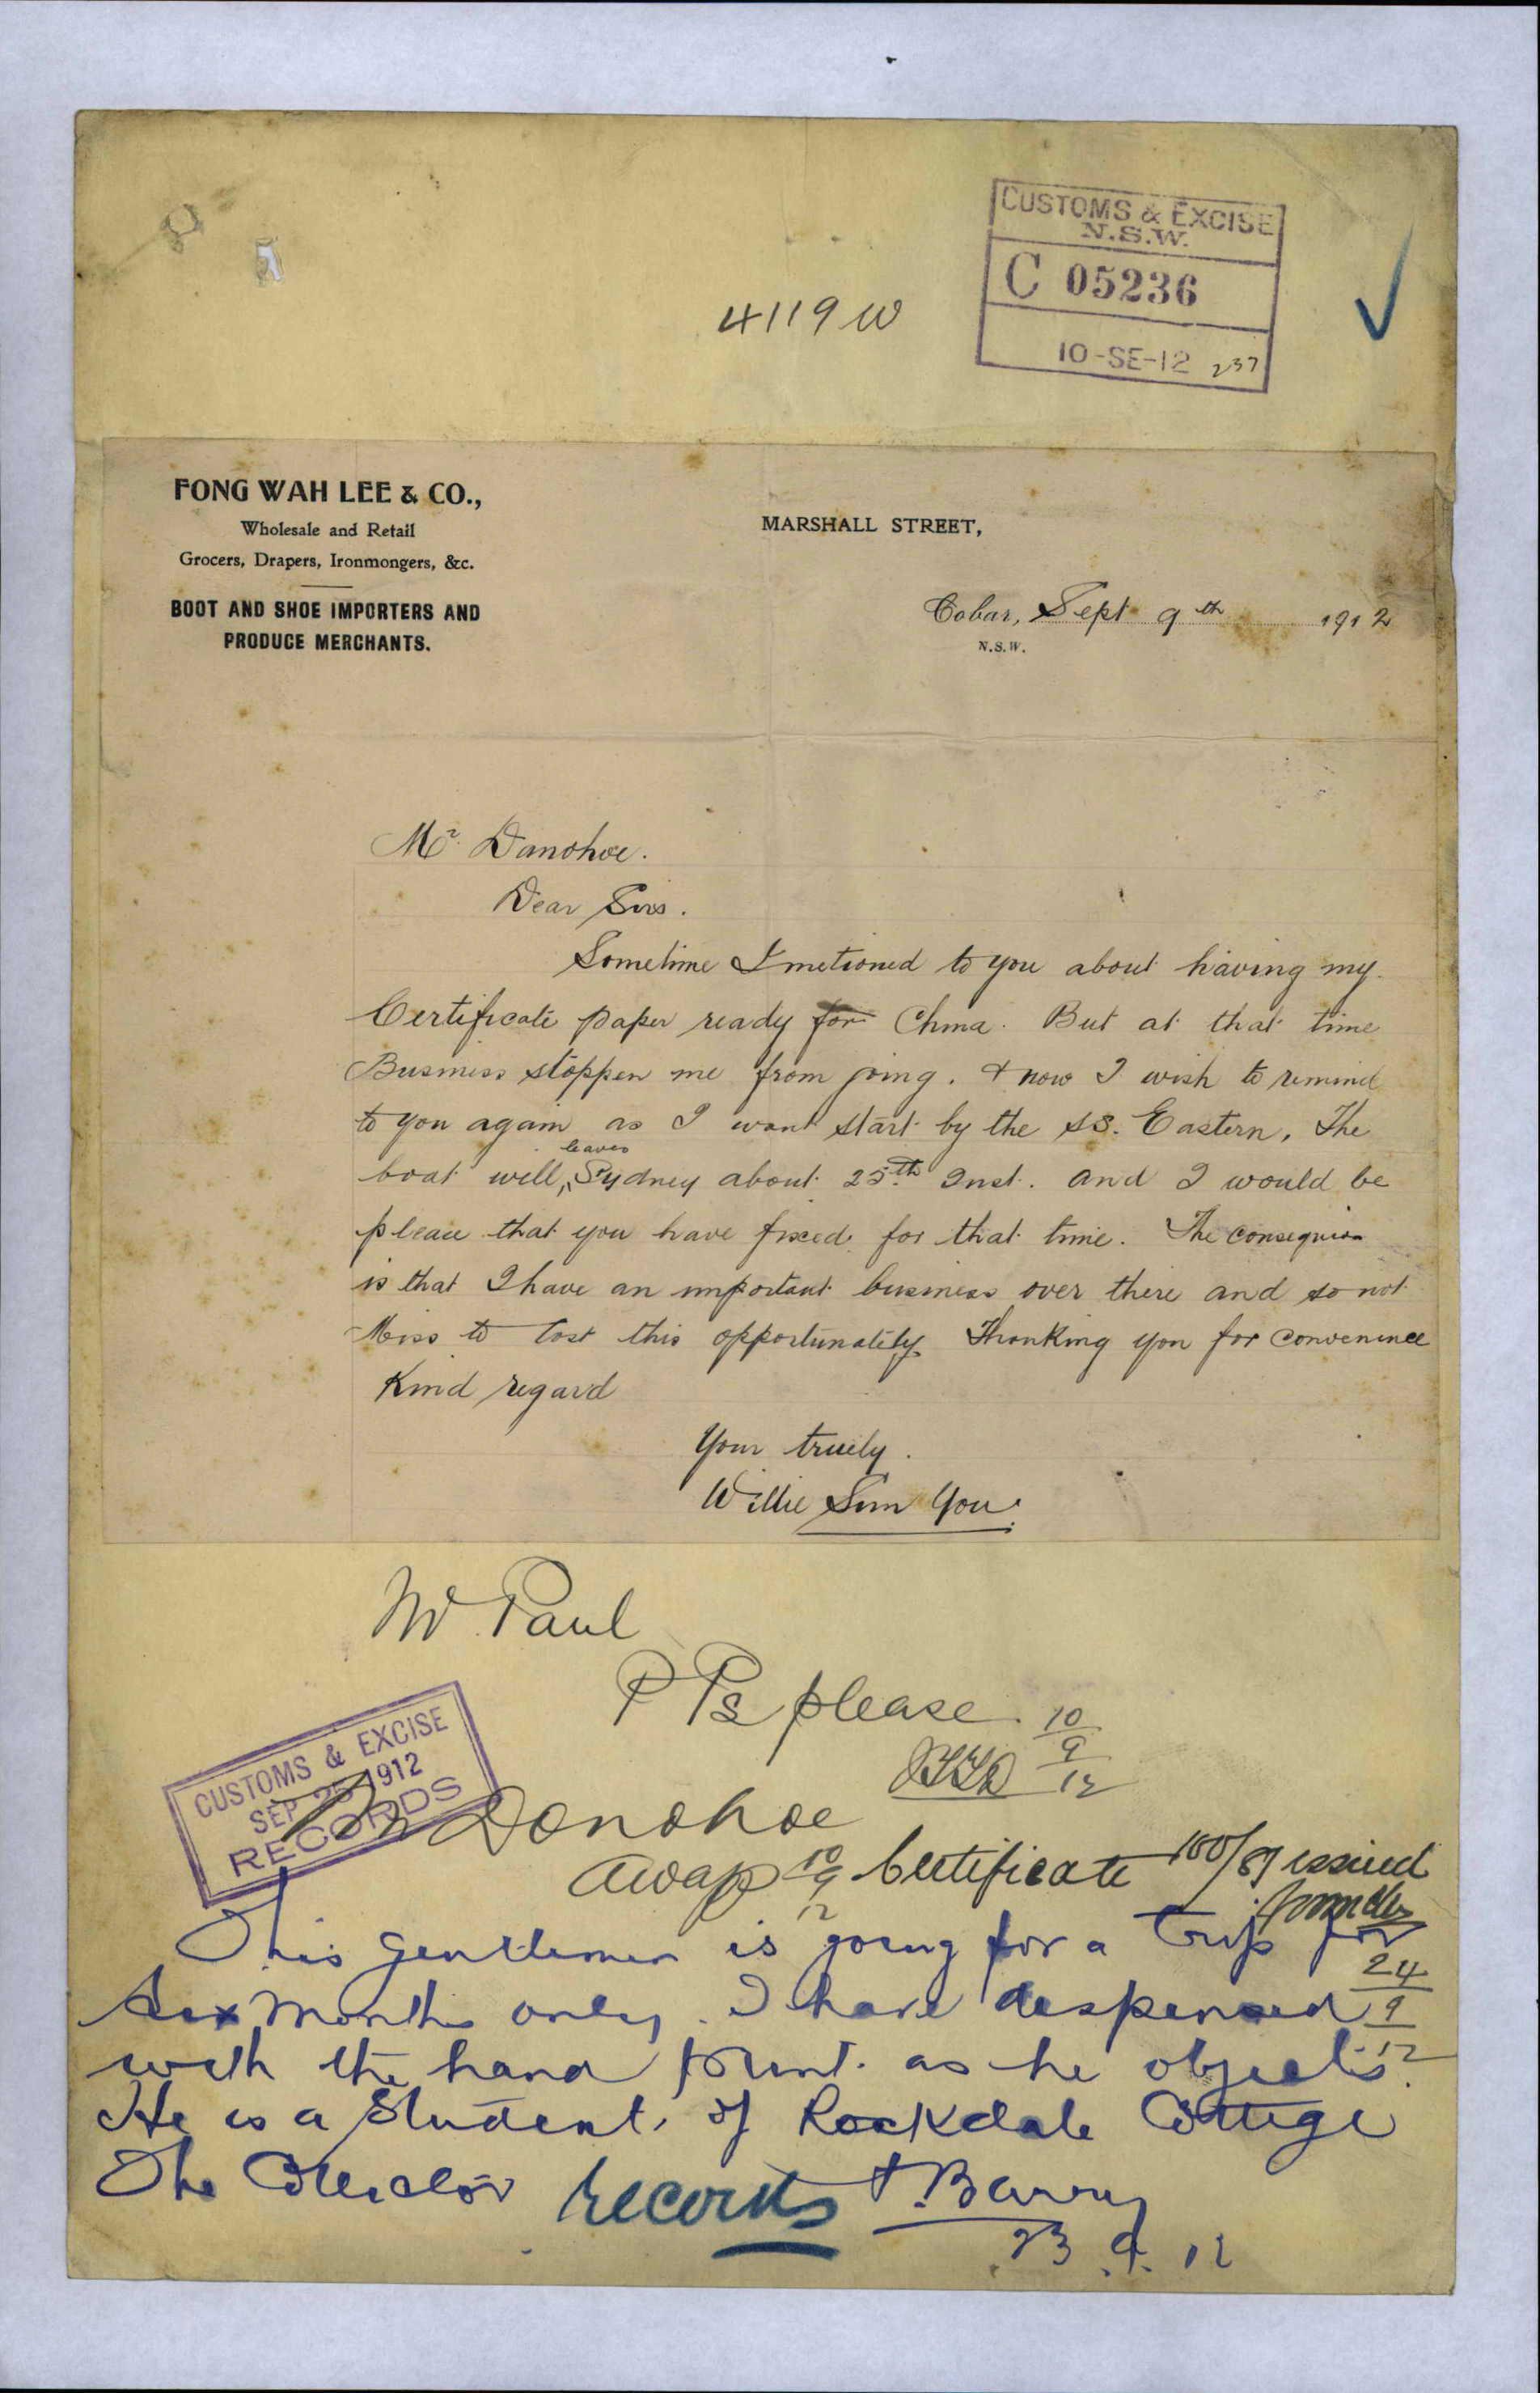 CUSTOMS & EXCISE
N.S.W.
C 05236
10-SE-12 237
4119 W
FONG WAH LEE & CO.,
Wholesale and Retail
Grocers, Drapers, Ironmongers, &c.
BOOT AND SHOE IMPORTERS AND
PRODUCE MERCHANTS.
MARSHALL STREET,
Cobar, Sept 9th 1912
N.S.W.
Mr. Danohoe.
Dear Sirs.
Sometime I metioned to you about having my
Certificate paper ready for China. But at that time
Business stoppen me from going. & now I wish to remind
to you again as I want start by the SS. Eastern. The
boat will leaves Sydney about 25th Inst. and I would be
please that you have fixed for that time. The
is that I have an important business over there and so not
Miss to lost this opportunately. Thanking you for convenince
Kind regard
Your truely.
Willie Sun You.
Mr Paul
P Ps please 10/9/12
CUSTOMS & EXCISE
SEP 25 1912
RECORDS
Mr Donohoe
10/9/12 Certificate 100/89 issued
24/9/12
This Gentleman is going for a trip for
Six months only. I have despensed
with the hand print as he objects.
He is a Student of Rockdale Cottage
The Collector
Records
T. Barry
23.9.12